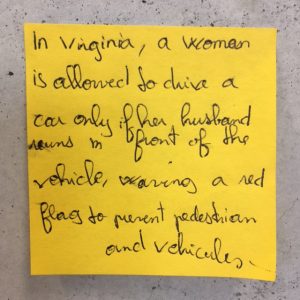 In Virginia, a woman
is allowed to drive a
car only if her husband
runs in front of the
vehicle, waving a red
flag to prevent pedestrian
and vehicules.